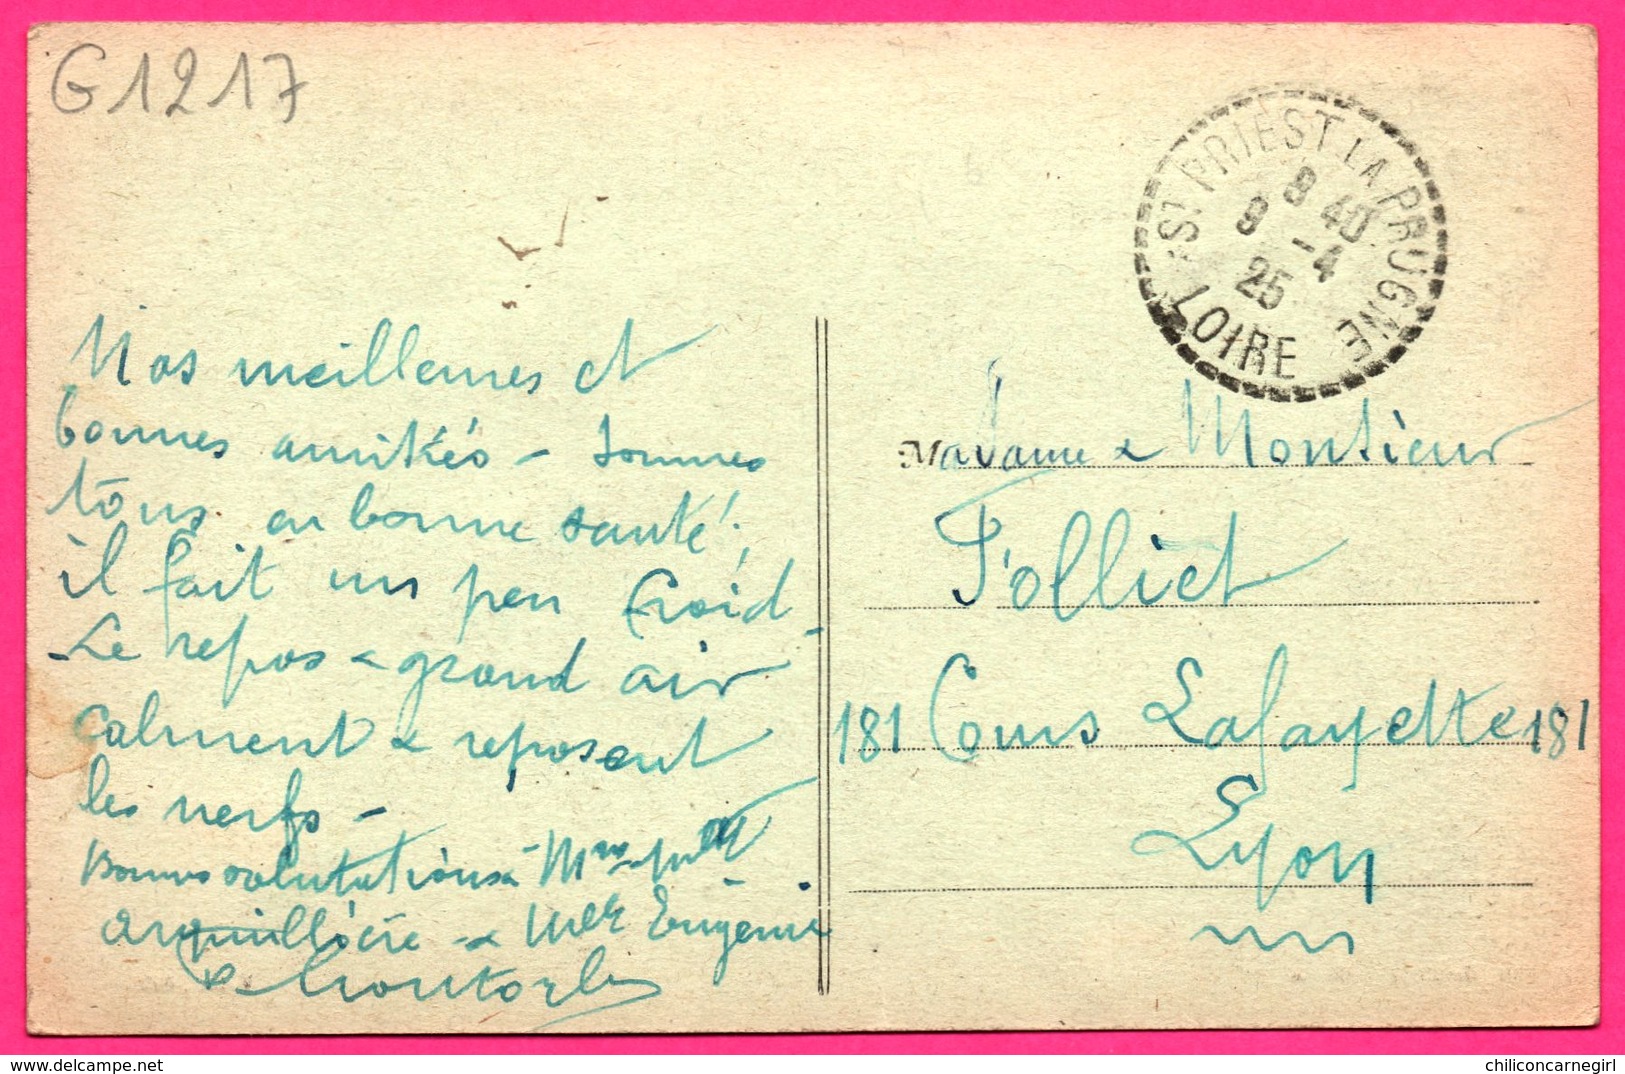 G1217
ST PRIEST LA PRUGNE
8 40
9 -4
25
LOIRE
Nos meilleures et
bonnes amitiés - sommes
tous en bonne santé,
il fait un peu froid -
Le repos & grand air
calment & reposent
les nerfs -
Bonnes salutations à Mme &
& Mlle Eugénie
Madame & Monsieur
Folliet
181 Cours Lafayette 181
Lyon
delcampe.net
chiliconcarnegirl